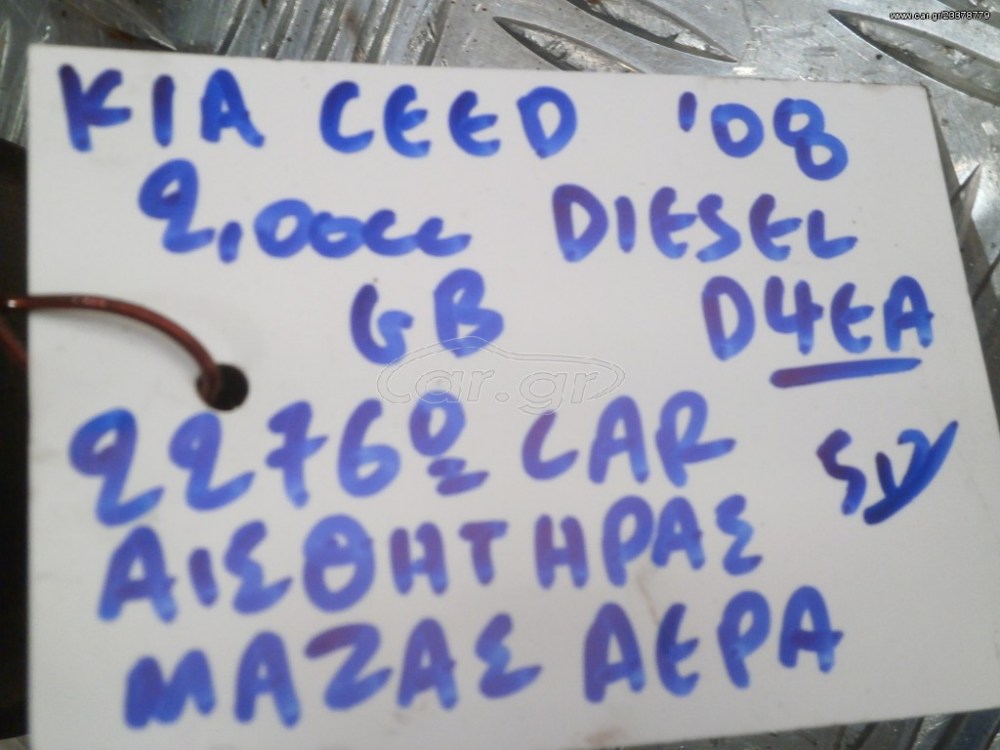 www.car.gr/23378779
KIA CEED '08
2,00cc DIESEL
GB D4EA
car.gr
2276º CAR
ΑΙΣΘΗΤΗΡΑΣ
ΜΑΖΑΣ ΑΕΡΑ